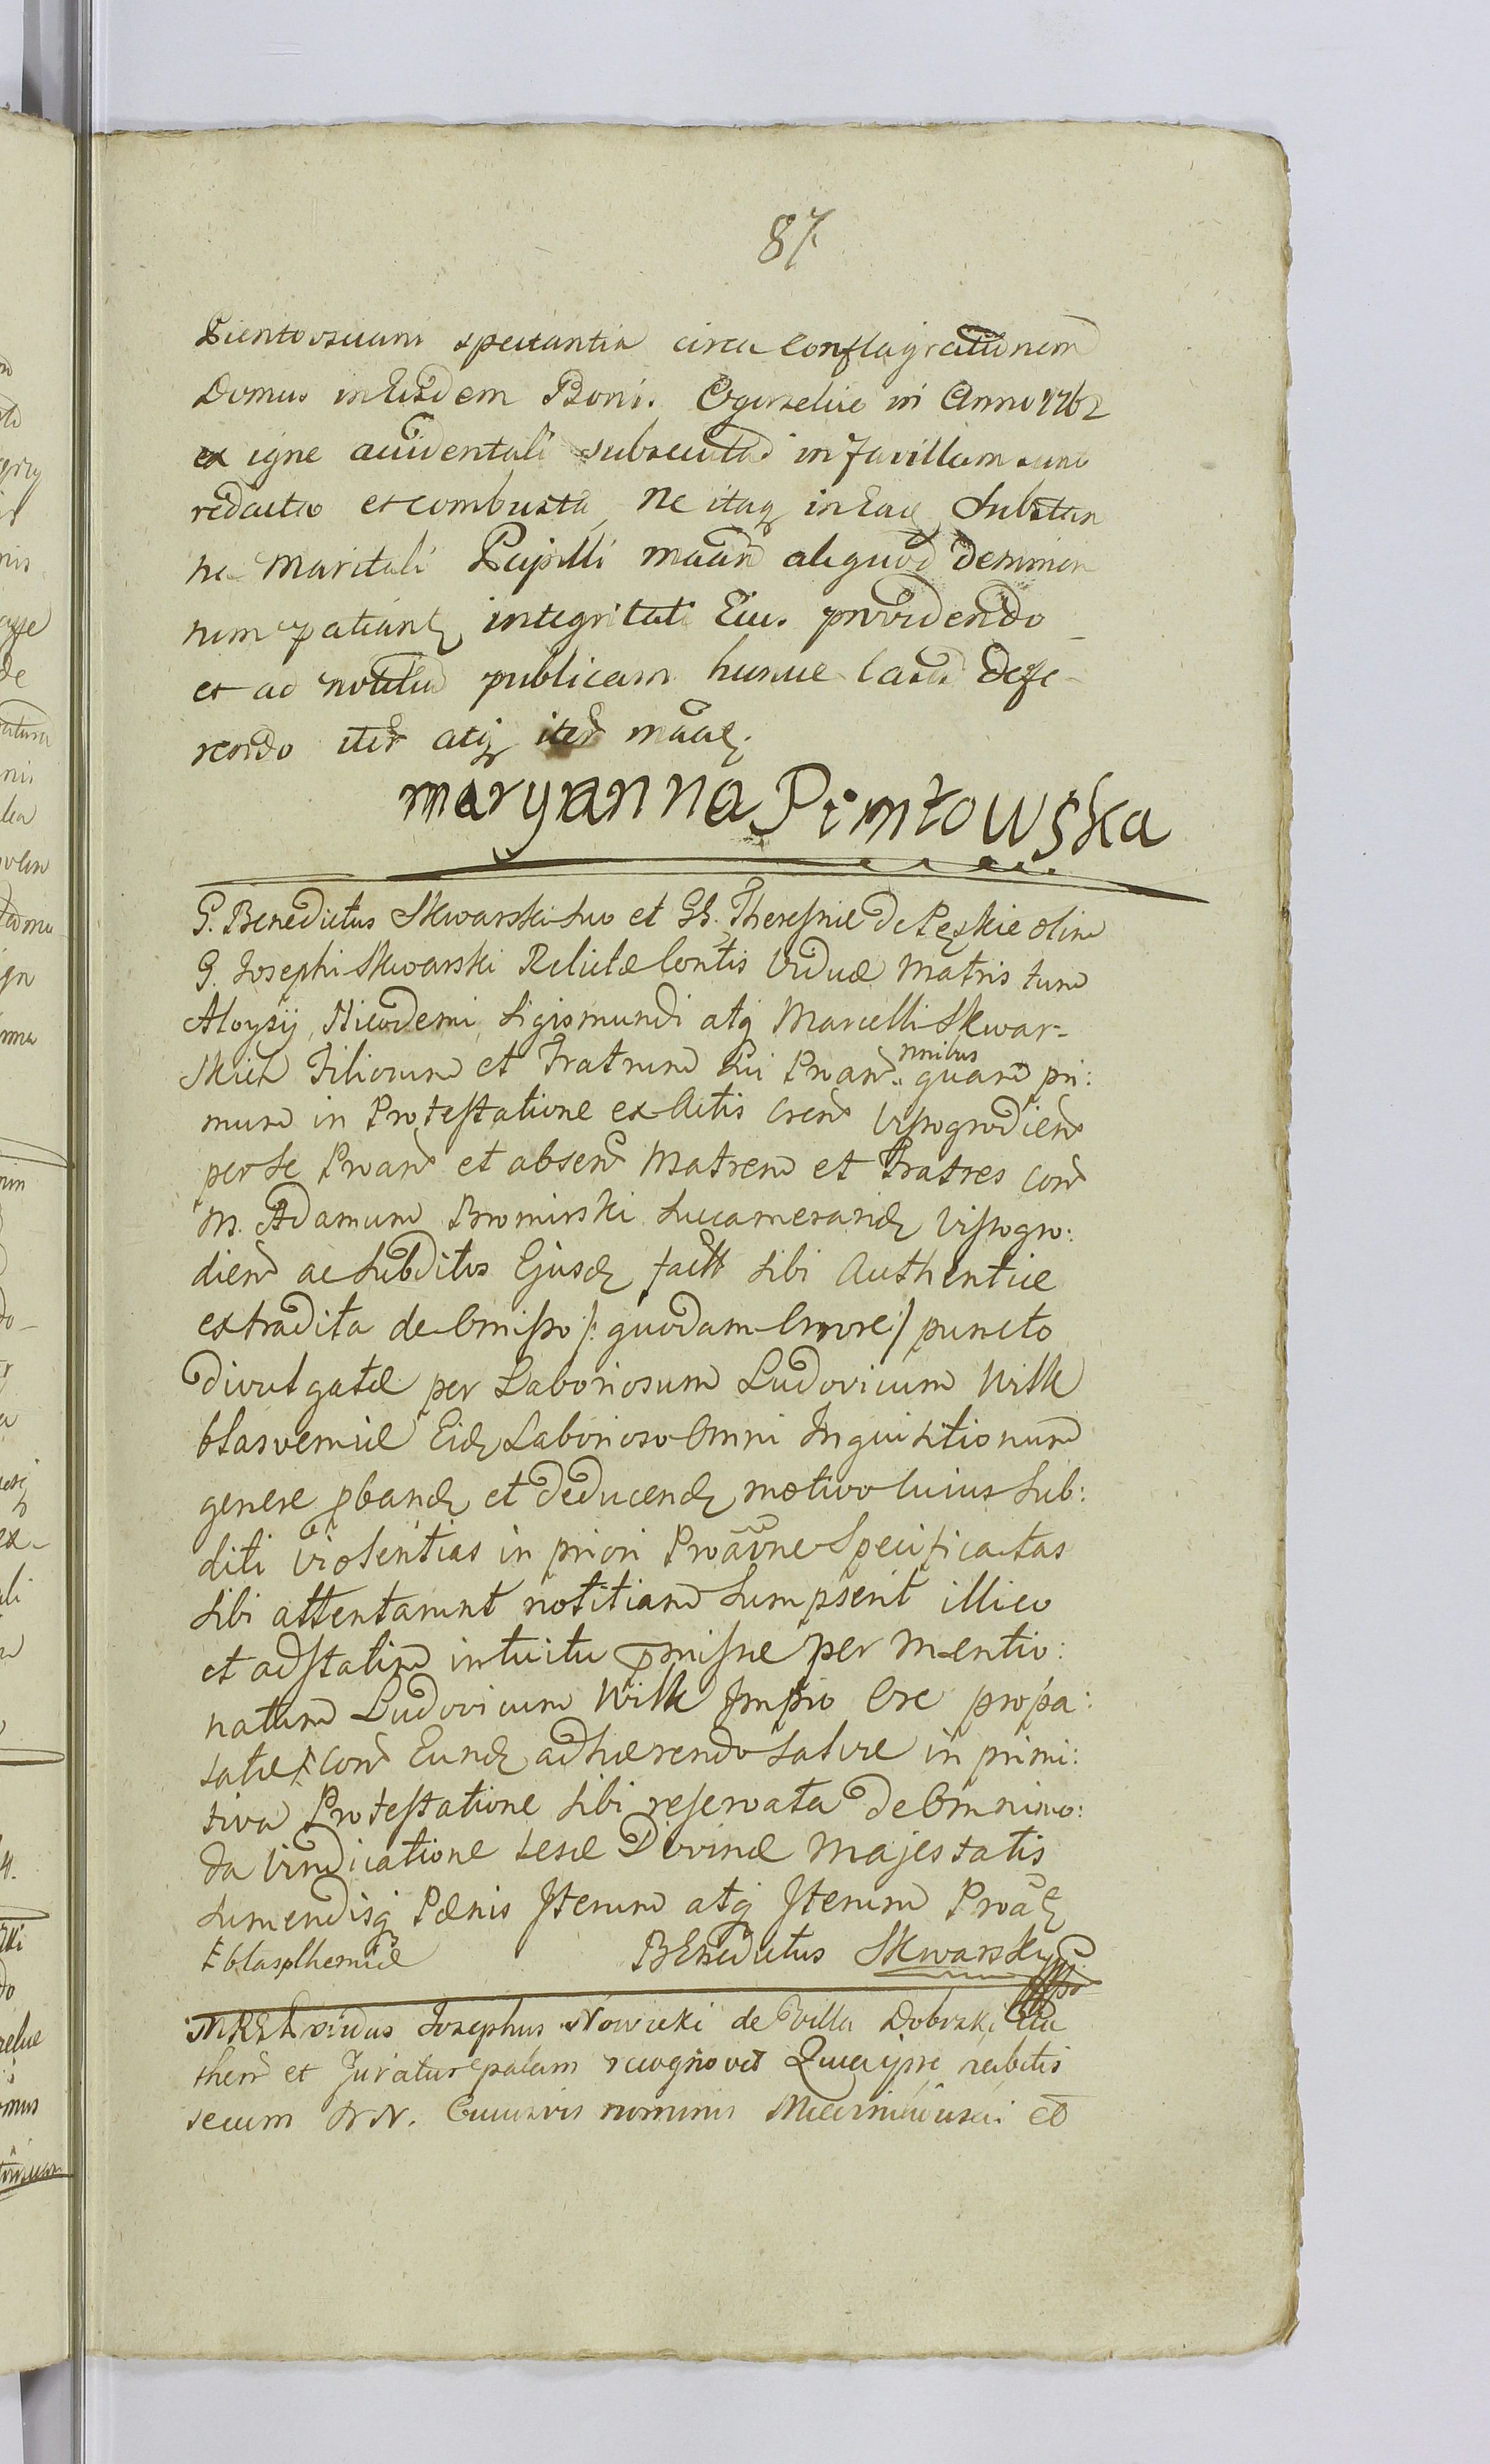 87.
spectantia circa Conflagrationem
Domus in Eisdem Bonis in Anno 1762
ex igne accidentali subsecutad in favillam sunt
redacta et combusta, Ne itaq in Eae Substan
tia Maritali Pupilli maan aliquod demmen
num patiantz integritati Eius providendo
et ad notitiad publicam hunue Casud defe-
rendo iter atq iter maae.
maryanna Pimtowska
G. Benedictus Skwarski suo et GG. Theressiae de Pęskie olim
G. Josephi Skwarski Relictæ Contis Viduæ Matris tum
Aloysij, Nicodemi, Sigismundi atq Marcelli Skwar-
skich Filiorum et Fratrum Sui Proan: nnibus quam pri:
mum in Protestatione ex Actis Cren Vissogrodien
per se Proan et absen Matrem et Fratres con
M. Adamum Bromirski Succamerarid Vissogro:
dien ac Subditos Ejusd factt sibi Authentice
extradita de Omisso /: quodam Errore :/ puncto
divulgatæ per Laboriosum Ludovicum Wilk
blasvemiæ Eid Laborioso Omni Inquisitionum
genere pband et deducend motivo cuius Sub:
diti violentias in priori Proaone Specificatas
sibi attentarunt notitiam Sumpserit illico
et adstatim intuitu pmissae per mentio:
natum Ludovicum Wilk Impio Ore propa:
latæ ‡ con Eund adhærendo Salvæ in primi:
tiva Protestatione sibi reservata de Omnimo:
da Vindicatione Lesæ Divinæ Majestatis
Sumendisq Pænis Iterum atq Iterum Proaz
‡ blasphemiæ
BEnedictus Skwarsky
Providus Josephus Nowicki de Villa Dobrska
then et Juratur palam recognovit Quia ipse habitis
secum NN. Cuiusvis nominis et